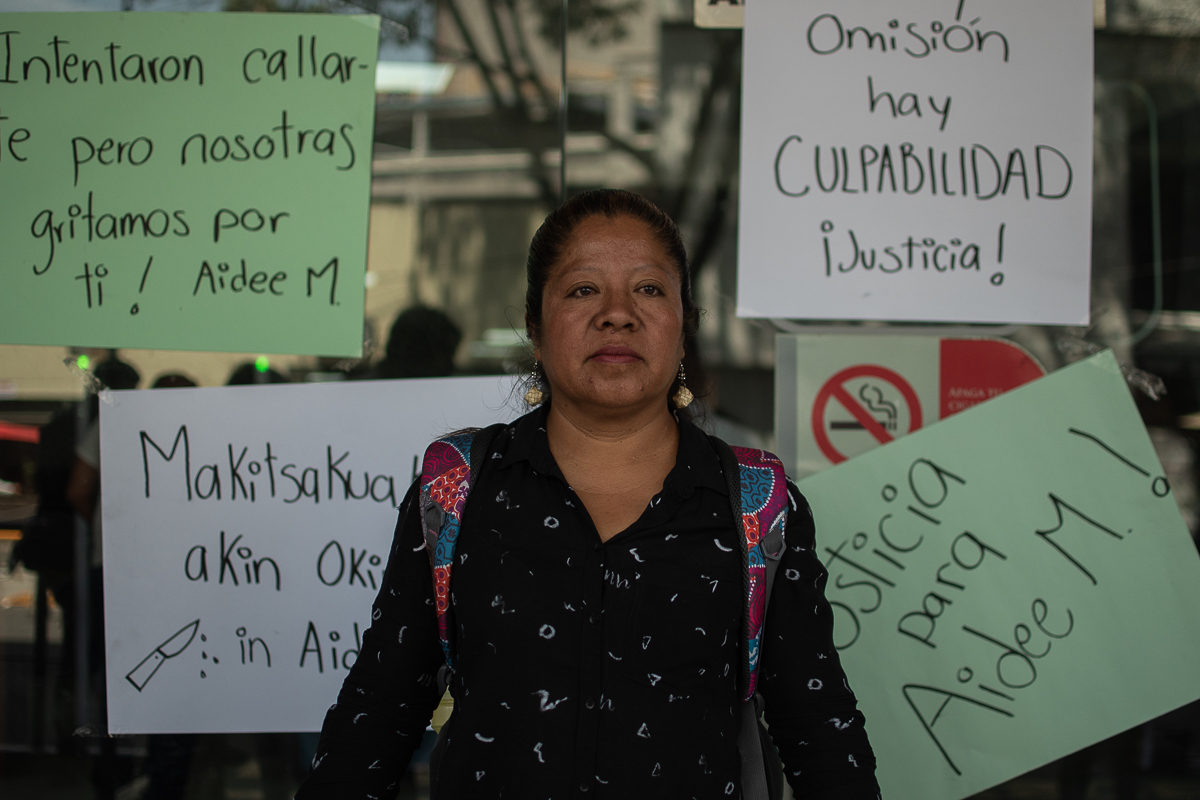 Intentaron callar-
te pero nosotras
gritamos por
ti! Aidee M.
Omisión
hay
CULPABILIDAD
¡Justicia!
Makitsakua
akin Oki
in Aid
APAGA TU
Justicia
para
Aidee M.!